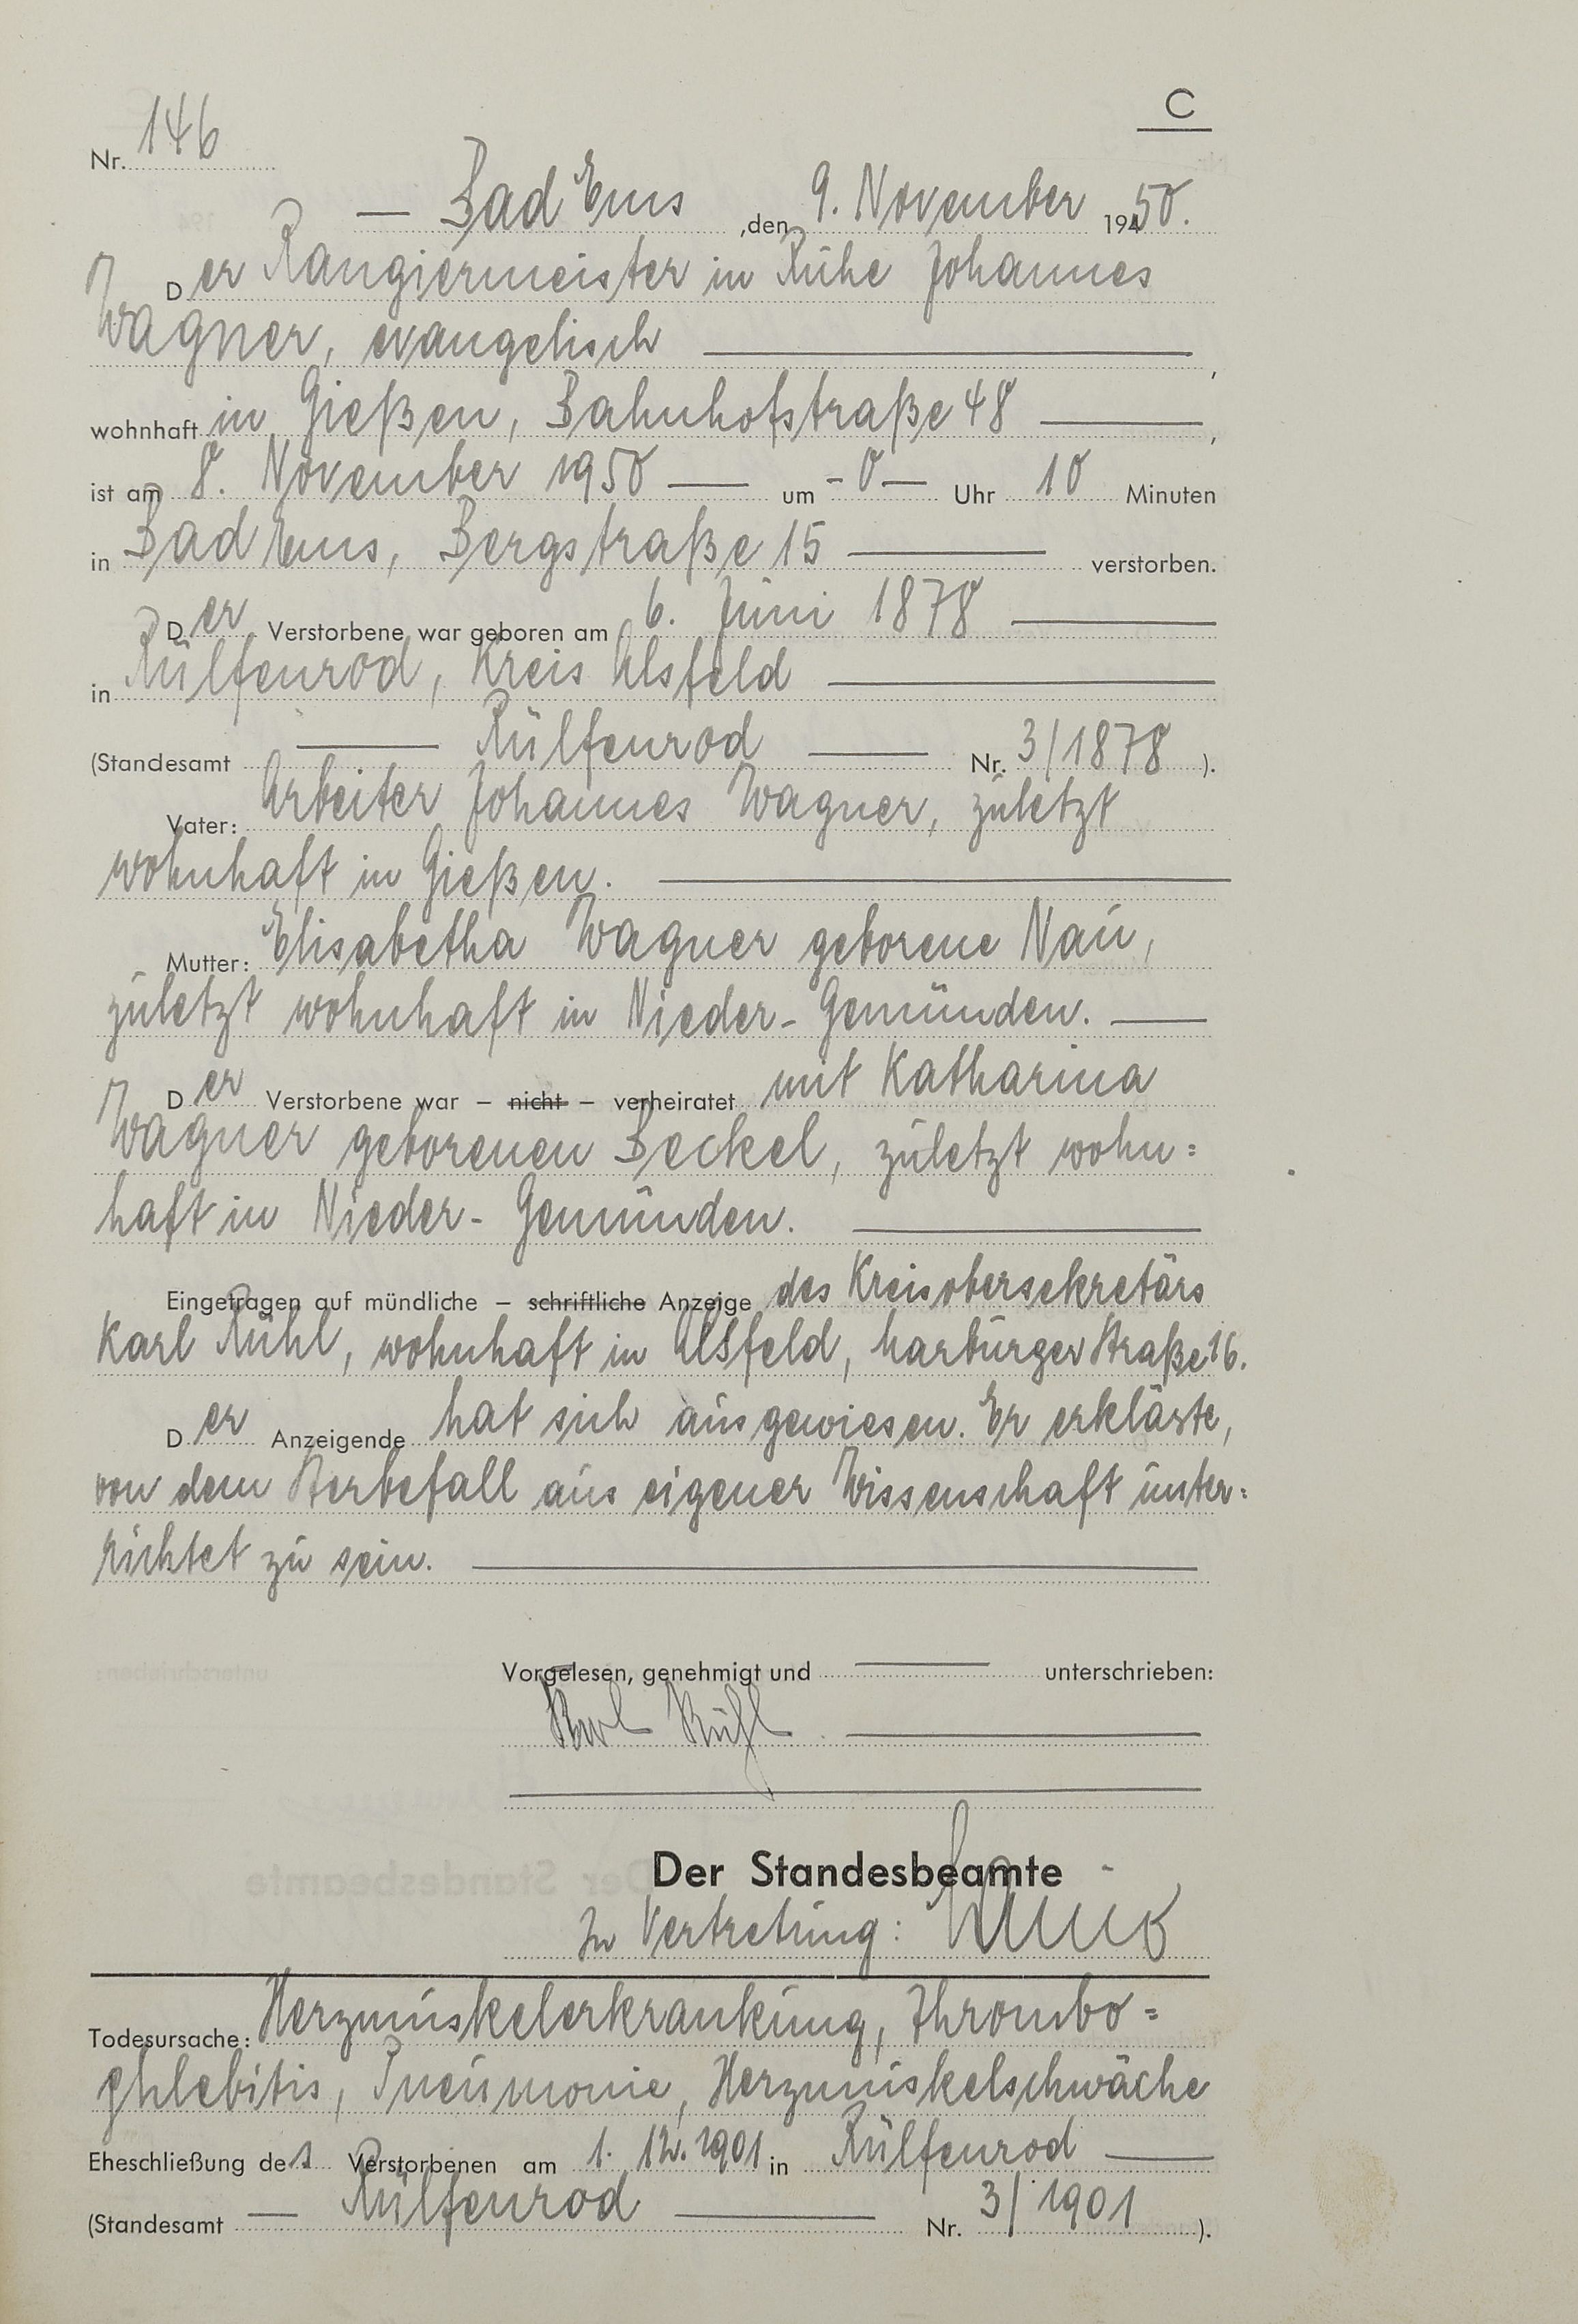 C
Nr. 146
— Bad Ems, den 9. November 1950.
Der Rangiermeister in Ruhe Johannes
Wagner, evangelisch —,
wohnhaft in Gießen, Bahnhofstraße 48 —,
ist am 8. November 1950 — um - 0 — Uhr 10 Minuten
in Bad Ems, Bergstraße 15 — verstorben.
Der Verstorbene war geboren am 6. Juni 1878 —
in Rülfenrod, Kreis Alsfeld —
(Standesamt — Rülfenrod — Nr. 3/1878).
Vater: Arbeiter Johannes Wagner, zuletzt
wohnhaft in Gießen. —
Mutter: Elisabetha Wagner geborene Nau,
zuletzt wohnhaft in Nieder-Gemünden. —
Der Verstorbene war – nicht – verheiratet mit Katharina
Wagner geborenen Beckel, zuletzt wohn=
haft in Nieder-Gemünden. —
Eingetragen auf mündliche – schriftliche Anzeige des Kreisobersekretärs
Karl Rühl, wohnhaft in Alsfeld, harburger Straße 16.
Der Anzeigende hat sich ausgewiesen. Er erklärte,
von dem Sterbefall aus eigener Wissenschaft unter=
richtet zu sein. —
Vorgelesen, genehmigt und — unterschrieben:
Karl Rühl —
Der Standesbeamte
In Vertretung:
Todesursache: Herzmuskelerkrankung, Thrombo=
phlebitis, Pneumonie, Herzmuskelschwäche
Eheschließung des Verstorbenen am 1. 12. 1901 in Rülfenrod —
(Standesamt — Rülfenrod — Nr. 3/1901).